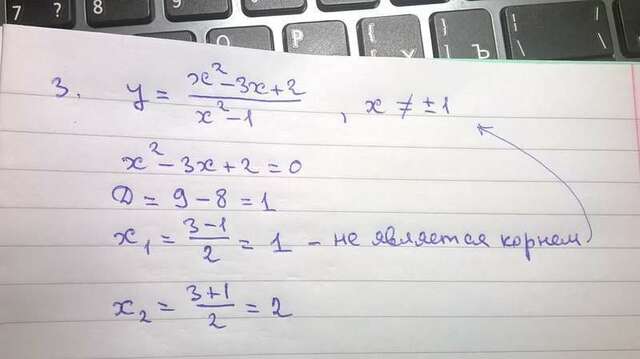 7 ? 8 9 /
\ Ъ
3. y = \frac{x^2-3x+2}{x^2-1}, x ≠ ±1
x^2-3x+2=0
D = 9-8=1
x_1 = \frac{3-1}{2} = 1 - не является корнем
x_2 = \frac{3+1}{2} = 2